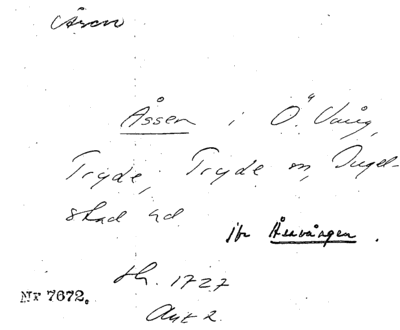 Åsen
Åssen i Ö. Vång,
Tryde, Tryde sn, Ingel-
stad hd.
jfr Åsavången.
sk. 1727
Akt 2.
Nr 7672.